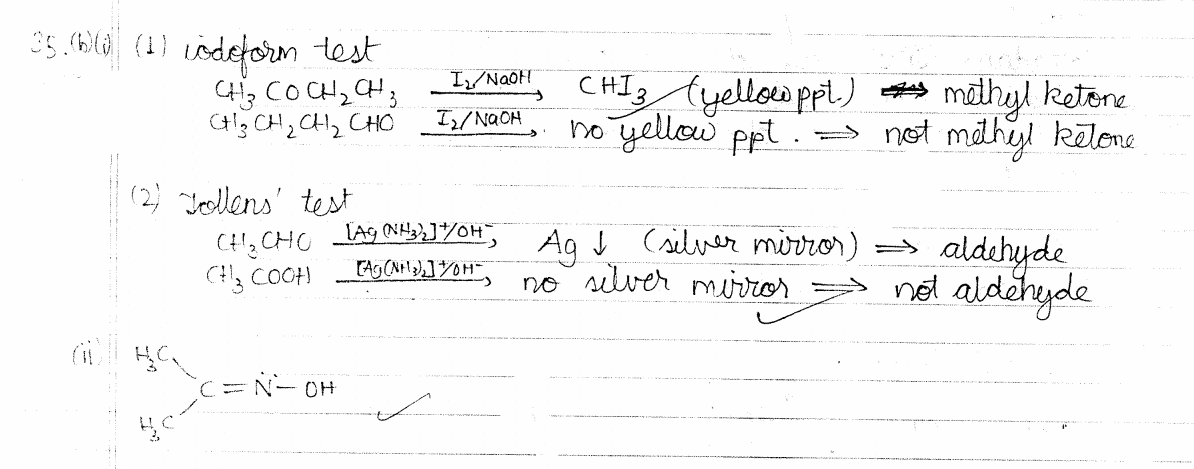 35.(b)(i) (1) iodoform test
CH₃COCH₂CH₃ I₂/NaOH→ CHI₃ (yellow ppt.) ⟹ methyl ketone
CH₃CH₂CH₂CHO I₂/NaOH→ no yellow ppt. ⟹ not methyl ketone
(2) Tollens' test
CH₃CHO [Ag(NH₃)₂]⁺/OH⁻→ Ag↓ (silver mirror) ⟹ aldehyde
CH₃COOH [Ag(NH₃)₂]⁺/OH⁻→ no silver mirror ⟹ not aldehyde
(ii) H₃C
C=N̈−OH
H₃C